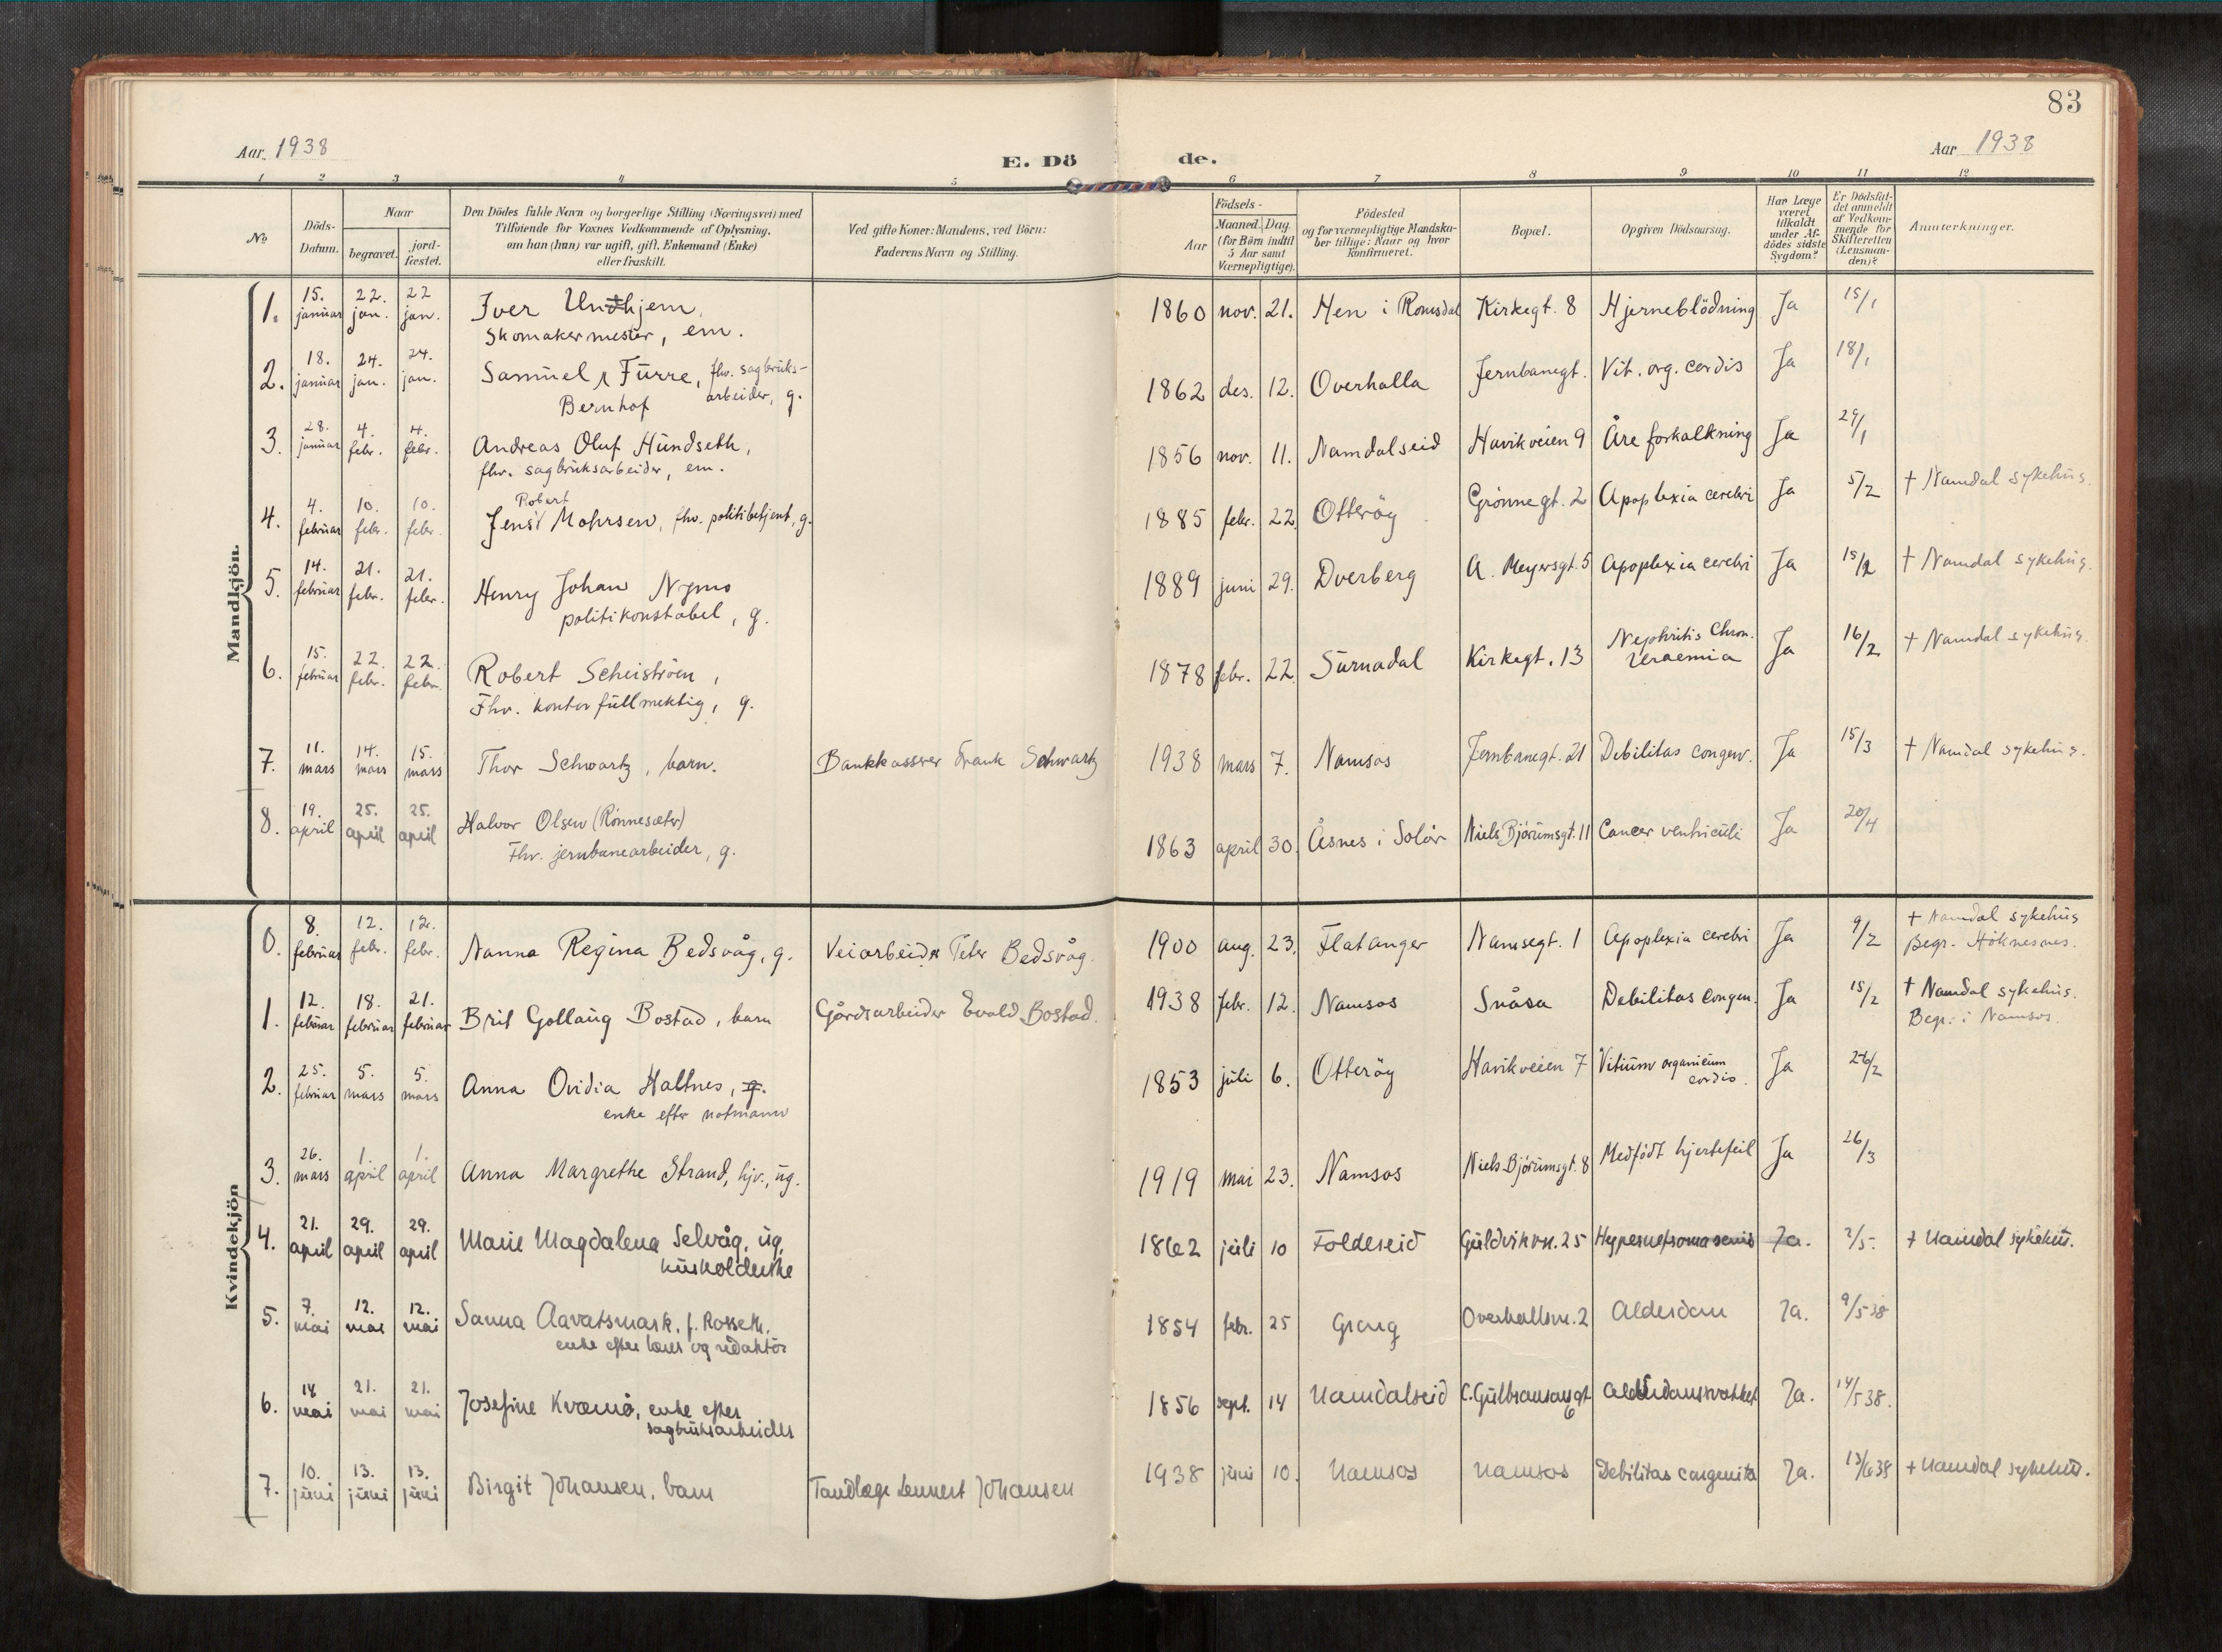 83
Aar 1938
E. Dö
de.
Aar 1938
1 2 3 4 5 6 7 8 9 10 11 12
No
Döds-Datum.
Naar
begravet.
jord-fæstet.
Den Dödes fulde Navn og borgerlige Stilling (Næringsvei) med
Tilföiende for Voxnes Vedkommende af Oplysning,
om han (hun) var ugift, gift, Enkemand (Enke)
eller fraskilt.
Ved gifte Koner: Mandens, ved Börn:
Faderens Navn og Stilling.
Födsels-
Aar
Maaned. Dag.
(for Börn indtil
5 Aar samt
Værnepligtige).
Födested
og for værnepligtige Mandska-
ber tillige: Naar og hvor
Konfirmeret.
Bopæl.
Opgiven Dödsaarsag.
Har Læge
været
tilkaldt
under Af-
dödes sidste
Sygdom?
Er Dödsfal-
det anmeldt
af Vedkom-
mende for
Skifteretten
(Lensman-
den)?
Anmærkninger.
Mandkjön.
1. 15. januar 22. jan. 22 jan. Iver Unhjem, 1860 nov. 21. Hen i Romsdal Kirkegt. 8 Hjerneblödning Ja 15/1
Skomakermester, em.
2. 18. januar 24. jan. 24. jan. Samuel Fürre, fhv. sagbruks- 1862 des. 12. Overhalla Jernbanegt. Vit. org. cordis Ja 18/1
Bernhof arbeider, g.
3. 28. januar 4. febr. 4. febr. Andreas Oluf Hündseth, 1856 nov. 11. Namdalseid Havikveien 9 Åreforkalkning Ja 29/1
fhv. sagbruksarbeider, em.
Robert
4. 4. februar 10. febr. 10. febr. Jens Mohrsen, fhv. politibetjent, g. 1885 febr. 22. Otteröy Grönnegt. 2 Apoplexia cerebri Ja 5/2 † Namdal sykehus.
5. 14. februar 21. febr. 21. febr. Henry Johan Nymo 1889 juni 29. Dverberg A. Meyersgt. 5 Apoplexia cerebri Ja 15/2 † Namdal sykehus.
politikonstabel, g.
6. 15. februar 22. febr. 22. febr. Robert Scheiströen, 1878 febr. 22. Surnadal Kirkegt. 13 Nephritis Chron. Uraemia Ja 16/2 † Namdal sykehus.
Fhv. kontorfullmektig, g.
7. 11. mars 14. mars 15. mars Thor Schwartz, barn. Bankkasserer Frank Schwartz 1938 mars 7. Namsos Jernbanegt. 21 Debilitas congen. Ja 15/3 † Namdal sykehus.
8. 19. april 25. april 25. april Halvor Olsen (Rönnesæter) 1863 april 30. Åsnes i Solör Niels Björumsgt. 11 Cancer ventriculi Ja 20/4
Fhv. jernbanearbeider, g.
Kvindekjön
0. 8. februar 12. febr. 12. febr. Nanna Regina Bedsvåg, g. Veiarbeider Peter Bedsvåg. 1900 aug. 23. Flatanger Namsegt. 1 Apoplexia cerebri Ja 9/2 † Namdal sykehus
Begr. Höknesnes.
1. 12. februar 18. februar 21. februar Brit Gollaug Bostad, barn Gårdsarbeider Evald Bostad. 1938 febr. 12. Namsos Snåsa Debilitas congen. Ja 15/2 † Namdal sykehus.
Begr. i Namsos.
2. 25. februar 5. mars 5. mars Anna Ovidia Haltnes, g. 1853 juli 6. Otteröy Havikveien 7 Vitium organicum cordis. Ja 26/2
enke efter notmann
3. 26. mars 1. april 1. april Anna Margrethe Strand, hjv., ug. 1919 mai 23. Namsos Niels Björumsgt. 8 Medfödt hjertefeil Ja 26/3
4. 21. april 29. april 29. april Marie Magdalena Selvåg, ug, 1862 juli 10 Foldereid Guldvikvn. 25 Ja. 2/5. † Namdal sykehus.
husholderske
5. 7. mai 12. mai 12. mai Sanna Aavatsmark, f. Rosseth, 1854 febr. 25 Grong Overhallsvn. 2 Alderdom Ja. 9/5 38
enke efter lærer og redaktör
6. 14 mai 21. mai 21. mai Josefine Kvæmö, enke efter 1856 sept. 14 Namdalseid C. Gulbransonsgt 6 Alderdomssvakhet Ja. 14/5 38.
sagbruksarbeider
7. 10. juni 13. juni 13. juni Birgit Johansen, barn Tandlæge Lennert Johansen 1938 juni 10. Namsos Namsos Debilitas congenita Ja. 13/6 38 † Namdal sykehus.